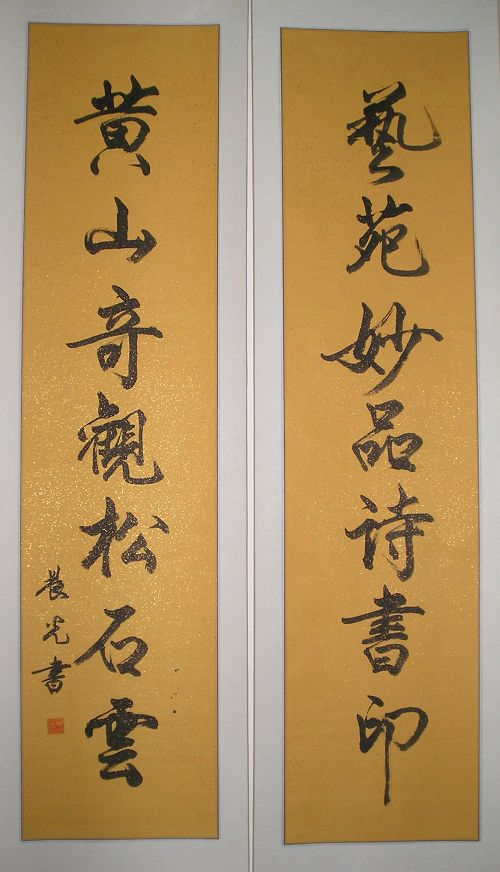 藝苑妙品诗書印
黄山奇觀松石雲
晨光書